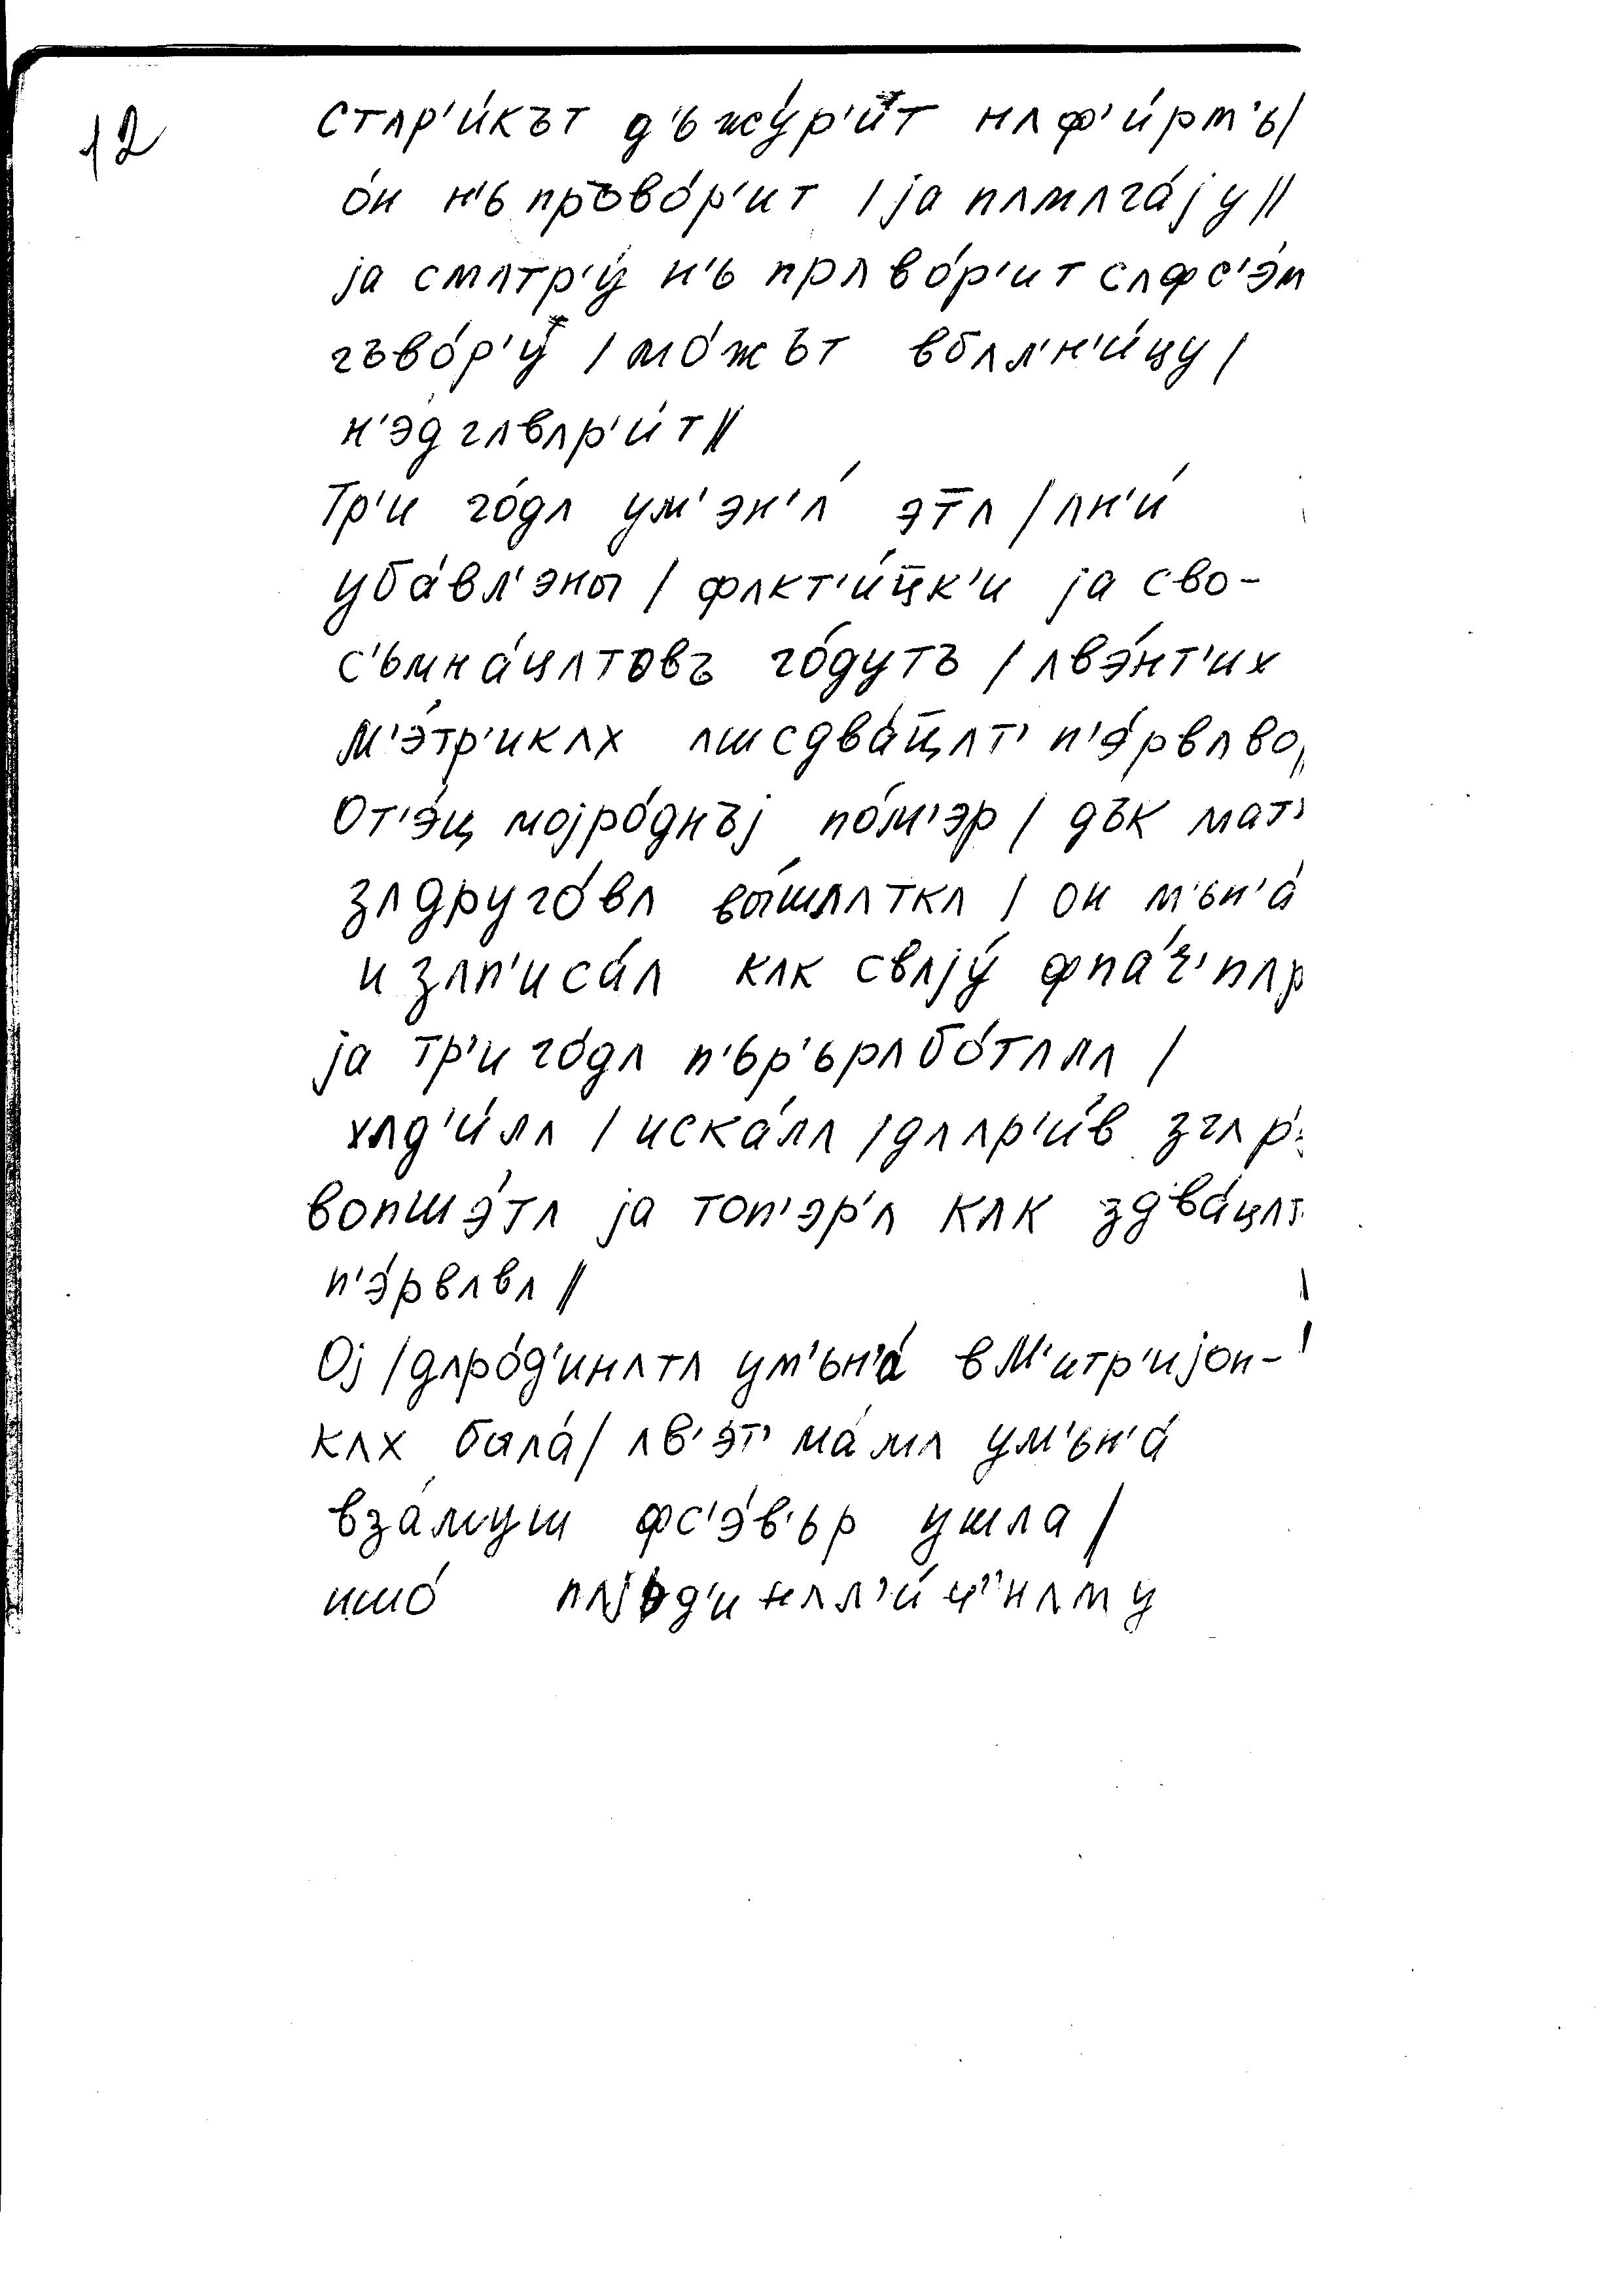 12
стʌр'и́кът д'ьжу́р'ит нʌф'и́рм'ь/
о́н н'ь пръво́р'ит / jа пʌмʌга́jу //
jа смʌтр'у́ н'ь прʌво́р'ит сʌфс'э́м
гъво́р'у / мо́жът вбʌл'н'и́цу /
н'эд гʌвʌр'и́т //
Тр'и го́дʌ ум'эн'ʌ́ эт̄ʌ / ʌн'и́
уба́вл'эны / фʌкт'и́ц̄к'и jа сво-
с'ьмна́цʌтовъ го́дутъ / ʌвэ́нт'их
м'э́тр'икʌх ʌшсдва́ц̄ʌт' п'э́рвʌво//
От'э́ц моjро́днъj по́м'эр / дък мат'
зʌдруго́вʌ вы́шлʌткʌ / он м'ьн'а́
и зʌп'иса́л кʌк свʌjу́ фпа́ч'пʌр
jа тр'и го́дʌ п'ьр'ьрʌбо́тʌлʌ /
хʌд'и́лʌ / иска́лʌ / дʌʌр'и́в згʌр'
вопшэ́тʌ jа топ'эр'ʌ кʌк здва́цʌт
п'э́рвʌвʌ //
Оj / дʌро́д'инʌтʌ ум'ьн'а́ вМ'итр'иjон-
кʌх была́ / ʌв'эт' ма́мʌ ум'ьн'а́
вза́муш фс'э́в'ьр ушла /
ишо́